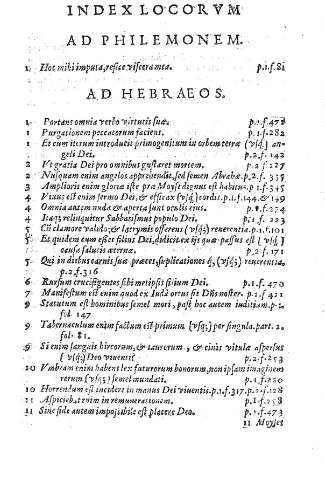 INDEX LOCORVM
AD PHILEMONEM.
1 Hoc mihi imputa, refice viscera mea. p.1.f.81
AD HEBRAEOS.
1 Portans omnia verbo virtutis suæ. p.1.f.478
1 Purgationem peccatorum faciens. p.1.f.282
1 Et cum iterum introducit primogenitum in orbem terræ (vsq;) an-
geli Dei. p.2.f.142
2 Vt gratia Dei pro omnibus gustaret mortem. p.2.f.227
2 Nusquam enim angelos apprehendit, sed semen Abrahæ. p.2.f.357
3 Amplioris enim gloriæ iste præ Moyse dignus est habitus. p.1.f.345
4 Viuus est enim sermo Dei, & efficax (vsq;) cordis. p.1.f.144. & 149
4 Omnia autem nuda & aperta sunt oculis eius. p.1.f.274
4 Itaq; relinquitur Sabbatismus populo Dei. p.1.f.223
5 Cū clamore valido, & lacrymis offerens (vsq;) reuerentia. p.1.f.101
5 Et quidem cum esset filius Dei, didicit ex ijs quæ passus est (vsq;)
causa salutis æternæ. p.2.f.171
5 Qui in diebus carnis suæ preces, supplicationes q;, (vsq;) reuerentia.
p.2.f.316
6 Rursum crucifigentes sibi metipsis filium Dei. p.1.f.470
7 Manifestum est enim quod ex Iuda ortus sit Dn̄s noster. p.1.f.421
9 Statutum est hominibus semel mori, post hoc autem iudicium. p.2.
fol. 147
9 Tabernaculum enim factum est primum (vsq;) per singula. part. 2.
fol. 81.
9 Si enim sanguis hircorum, & taurorum, & cinis vitulæ aspersus
(vsq;) Deo viuenti p.2.f.253
10 Vmbram enim habens lex futurorum bonorum, non ipsam imaginem
rerum (vsq;) semel mundati. p.1.f.220
10 Horrendum est incidere in manus Dei viuentis. p.1.f.317. p.2.f.128
11 Aspiciebat enim in remunerationem. p.1.f.258
11 Sine fide autem impossibile est placere Deo. p.1.f.473
11 Moyses